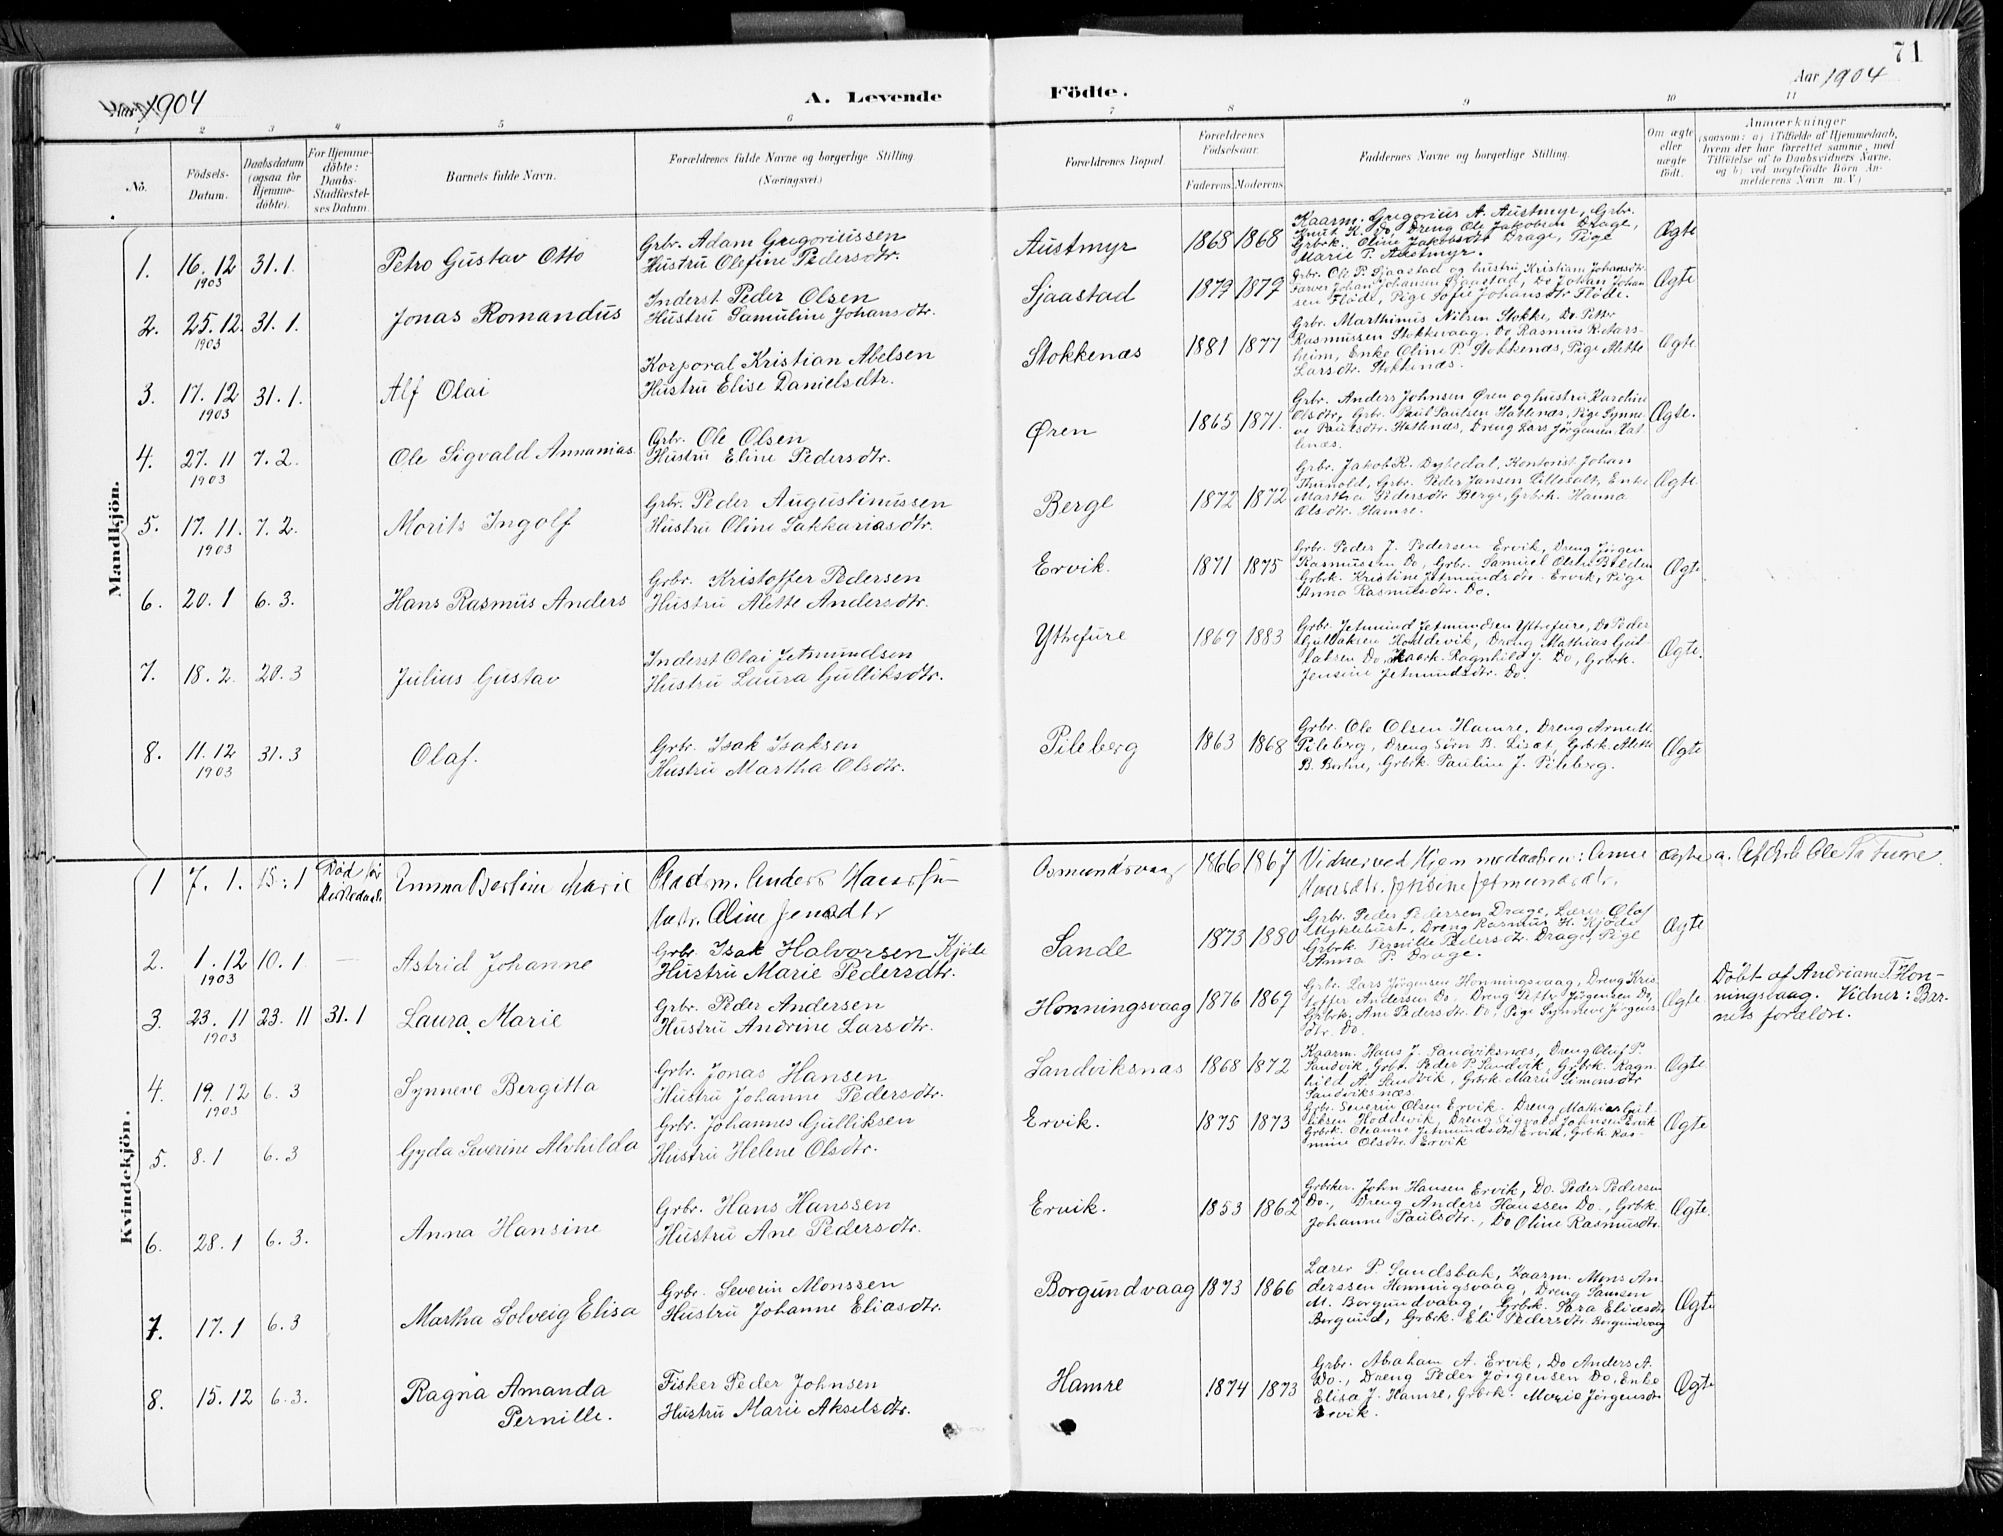 71
Aar 1904
A. Levende Födte.
Aar 1904
1 2 3 4 5 6 7 8 9 10 11
No.
Födsels-Datum.
Daabsdatum (ogsaa for Hjemme-döbte).
For Hjemme-döbte: Daabs-Stadfæstel-ses Datum.
Barnets fulde Navn.
Forældrenes fulde Navne og borgerlige Stilling
(Næringsvei.)
Forældrenes Bopæl.
Forældrenes Födselsaar.
Faderens. Moderens.
Faddernes Navne og borgerlige Stilling.
Om ægte eller uægte födt.
Anmærkninger
(saasom: a) i Tilfælde af Hjemmedaab,
hvem der har forrettet samme, med
Tilföielse af to Daabsvidners Navne,
og b) ved uægtefödte Börn An-
melderens Navn m. V.)
Mandkjön.
1. 16. 12 1903 31. 1. Petro Gustav Otto
Grbr. Adam Gregoriussen
Hustru Olefine Pedersdtr.
Austmyr 1868 1868
Kaarm. Gregorius A. Austmyr, Grbr.
Knut K. Do, Dreng Ole Jakobsen Drage,
Grbrk. Oline Jakobsdtr Drage, Pige
Marie P. Austmyr.
Ægte
2. 25. 12. 1903 31. 1. Jonas Romandus
Inderst Peder Olsen
Hustru Samuline Johansdtr.
Sjaastad 1879 1879
Grbr. Ole P. Sjaastad og hustru Kristiam Johansdtr.
Farver Johan Johansen Sjaastad, Do Johan Johan
sen Flöde, Pige Sofie Johansdtr Flöde.
Ægte
3. 17. 12 1903 31. 1. Alf Olai
Korporal Kristian Abelsen
Hustru Elise Danielsdtr.
Stokkenæs 1881 1877
Grbr. Marthinus Nilsen Stokke, Do. Petter
Rasmussen Stokkevaag. Do Rasmus R. Aars-
heim, Enke Oline P. Stokkenæs, Pige Alette
Larsdtr. Stokkenæs.
Ægte
4. 27. 11 1903 7. 2. Ole Sigvald Annanias
Grbr. Ole Olsen
Hustru Eline Pedersdtr.
Øren 1865 1871.
Grbr. Anders Johnsen Øren og hustru Karoline
Olsdtr, Grbr. Paul Paulsen Hatlenæs, Pige Synne-
ve Paulsdtr. Hatlenæs, Dreng Lars Jörgensen Hat
lenæs.
Ægte.
5. 17. 11. 1903 7. 2. Morits Ingolf
Grbr. Peder Augustinussen
Hustru Oline Sakkariasdtr.
Berge 1872 1872
Grbr. Jakob R. Dybedal, Kontorist Johan
Thunold, Grbr. Peder Jansen Lillesalt, Enke
Martha Pedersdtr Berge, Grbrk. Hanna
Olsdtr. Hamre.
Ægte
6. 20. 1 6. 3. Hans Rasmus Anders
Grbr. Kristoffer Pedersen
Hustru Alette Andersdtr.
Ervik. 1871 1875
Grbr. Peder J. Pedersen Ervik, Dreng Jörgen
Rasmussen Do, Grbr. Samuel Olsen
Grbrk. Kristine Jetmundsdtr. Ervik, Pige
Anna Rasmusdtr. Do.
Ægte.
7. 18. 2. 20. 3 Julius Gustav
Inderst Olai Jetmundsen
Hustru Laura Gulliksdtr.
Yttrefure 1869 1883
Grbr. Jetmund Jetmundsen Yttrefure, Do Peder
Gullaksen Hoddevik, Dreng Mathias Gul-
laksen Do, Kaark. Ragnhild J. Do, Grbrk.
Jensine Jetmundsdtr. Do.
Ægte.
8. 11. 12 1903 31. 3 Olaf.
Grbr. Isak Isaksen
Hustru Martha Olsdtr.
Pileberg 1863 1868
Grbr. Ole Olsen Hamre, Dreng Arne M.
Pileberg, Dreng Sörn B. Liset, Grbrk. Alette
B. Berstne, Grbrk. Pauline J. Pileberg.
Ægte
Kvindekjön.
1 7. 1. 15. 1 Död för Kirkedaab Emma Bertine Marie
Pladsm. Anders Hansen
Hustr. Oline Jensdtr
Osmundsvaag 1866 1867
Vidner ved Hjemmedaaben: Anne
Hansdtr. Jetmundsdtr.
ægte
a. Af Grb Ole Fure.
2. 1. 12 1903 10. 1 — Astrid Johanne
Grbr. Isak Halvorsen Kjöde
Hustru Marie Pedersdtr.
Sande 1873 1880
Grbr. Peder Pedersen Drage, Lærer Olaf
Myklebust, Dreng Rasmus H. Kjöde
Grbrk Pernille Pedersdtr. Drage, Pige
Anna P. Drage.
Ægte
3. 23. 11 1903 23. 11 31. 1 Laura Marie
Grbr. Peder Andersen
Hustru Andrine Larsdtr.
Honningsvaag 1876 1869
Grbr. Lars Jörgensen Honningsvaag, Dreng Kris
toffer Andersen Do, Dreng Petter Jörgensen Do,
Grbrk. Ane Pedersdtr Do, Pige Synneve Jörgens
dtr. Do.
Ægte
Döbt af Andriane T. Hon-
ningsvaag. Vidner: Bar-
nets forældre.
4. 19. 12 1903 6. 3 Synneve Bergitta
Grbr. Jonas Hansen
Hustru Johanne Pedersdtr.
Sandviksnæs 1868 1872
Kaarm. Hans J. Sandviksnæs, Dreng Oluf P.
Sandvik, Grbr. Peder P. Sandvik, Grbrk. Ragn-
hild A. Sandvik, Grbrk Marie Simonsdtr
Sandviksnæs.
Ægte
5. 8. 1 6. 3 Gyda Severine Alvhilda
Grbr. Johannes Gulliksen
Hustru Helene Olsdtr.
Ervik. 1875 1873
Grbr. Severin Olsen Ervik. Dreng Mathias Gul
liksen Hoddevik, Dreng Sigvald Johnsen Ervik
Grbrk. Oleanne Jetmundsdtr Ervik, Grbrk Ras-
mine Olsdtr. Ervik
Ægte
6. 28. 1 6. 3. Anna Hansine
Grbr. Hans Hanssen
Hustru Ane Pedersdtr.
Ervik. 1853 1862
Grbrker. John Hansen Ervik, Do. Peder Pedersen
Do., Dreng Anders Hanssen Do., Grbrk.
Johanne Paulsdtr., Do Oline Rasmusdtr.
Ægte.
7. 17. 1 6. 3 Martha Solveig Elisa
Grbr. Severin Monssen
Hustru Johanne Eliasdtr.
Borgundvaag 1873 1866
Lærer P Sandsbak, Kaarm. Mons An-
derssen Honningsvaag, Dreng Samsen
M. Borgundvaag, Grbrk. Sara Eliasdtr
Borgund, Grbrk. Eli Pedersdtr Borgundvaag
Ægte
8. 15. 12 6. 3. Ragna Amanda
Pernille.
Fisker Peder Johnsen
Hustru Marie Akselsdtr.
Hamre 1874 1873
Grbr. Abraham A. Ervik, Do Anders A.
Do., Dreng Peder Jörgensen Do, Enke
Elisa J. Hamre, Grbrk. Marie Jörgensdtr
Ervik.
Ægte